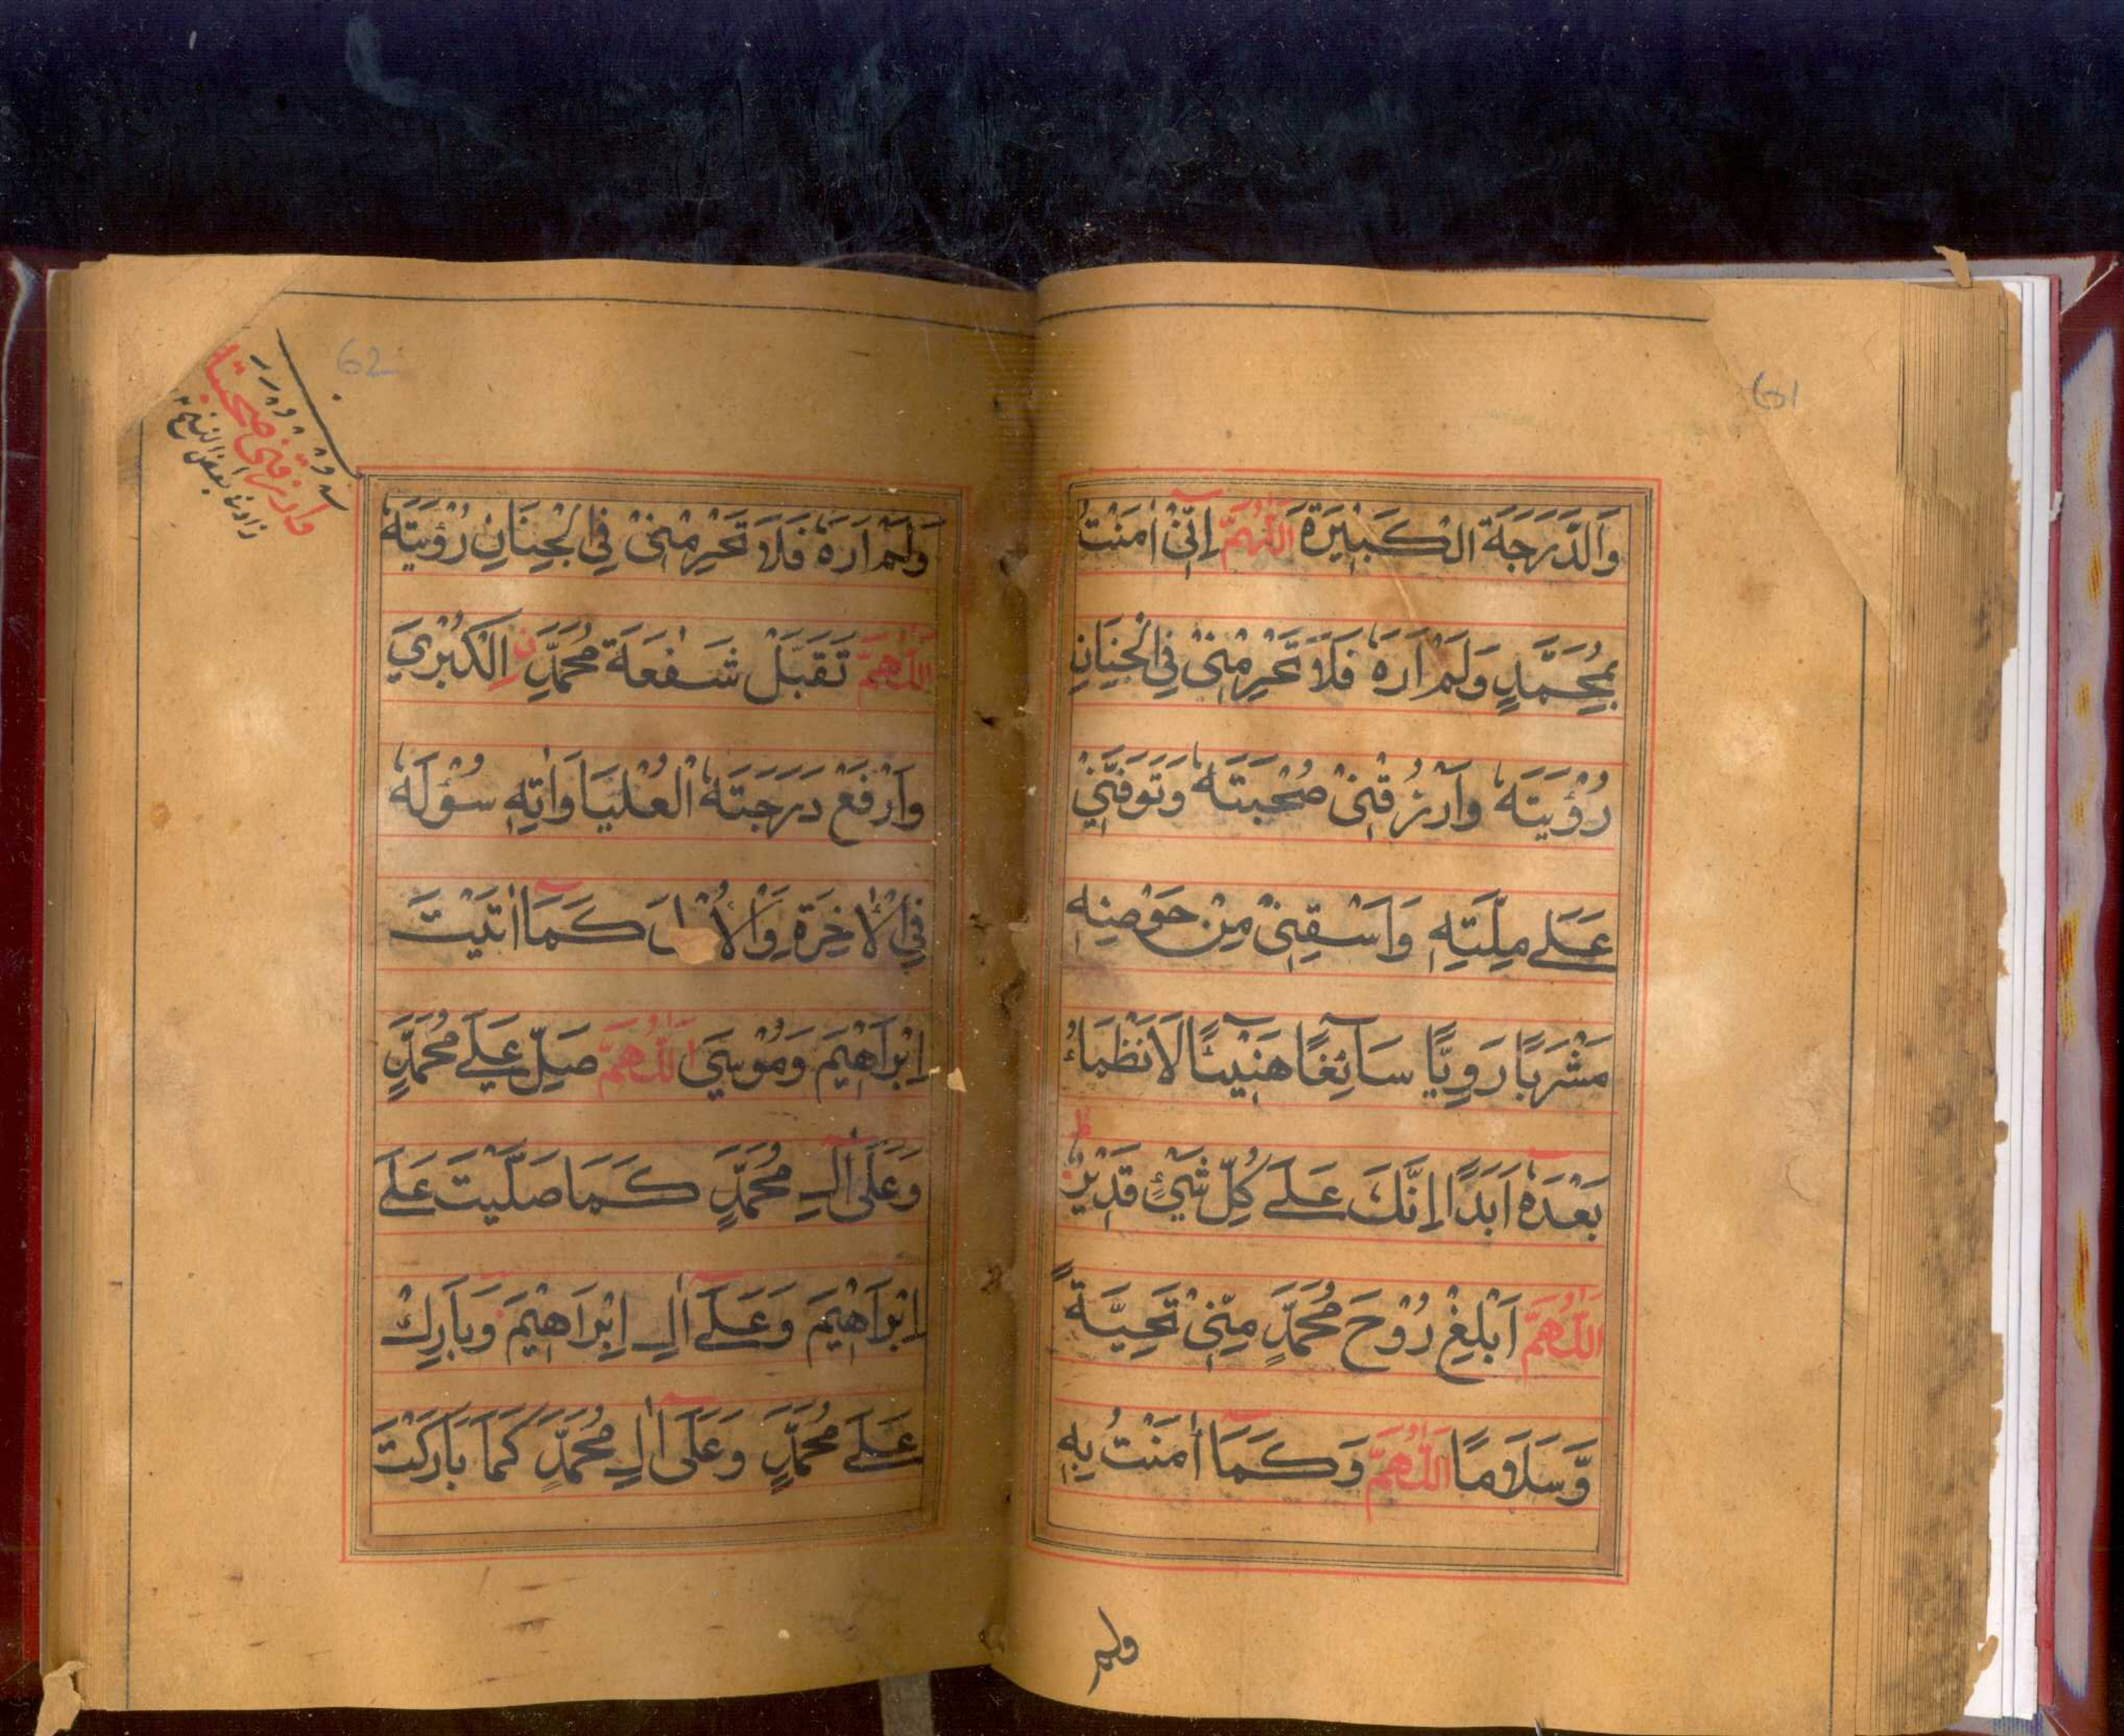 61
وَالدَّرَجَةَ الْكَبِيْرَةَ اَللّٰهُمَّ اِنِّيْ اٰمَنْتُ
بِمُحَمَّدٍ وَلَمْ اَرَهٗ فَلَا تَحْرِمْنِيْ فِي الْجِنَانِ
رُؤْيَتَهٗ وَارْزُقْنِيْ صُحْبَتَهٗ وَتَوَفَّنِيْ
عَلٰى مِلَّتِهٖ وَاسْقِنِيْ مِنْ حَوْضِهٖ
مَشْرَبًا رَوِيًّا سَآئِغًا هَنِيْئًا لَا نَظْمَاءُ
بَعْدَهٗٓ اَبَدًا اِنَّكَ عَلٰى كُلِّ شَيْءٍ قَدِيْرٌ ط
اَللّٰهُمَّ اَبْلِغْ رُوْحَ مُحَمَّدٍ مِّنِّيْ تَحِيَّةً
وَّسَلَامًا اَللّٰهُمَّ وَكَمَآ اٰمَنْتُ بِهٖ
ولم
62
وَارْزُقْنِيْ صُحْبَتَهٗ
زاد في بعض النسخ
وَلَمْ اَرَهٗ فَلَا تَحْرِمْنِيْ فِي الْجِنَانِ رُؤْيَتَهٗ
اَللّٰهُمَّ تَقَبَّلْ شَفٰعَةَ مُحَمَّدِ نِ الْكُبْرٰي
وَارْفَعْ دَرَجَتَهٗ الْعُلْيَا وَاٰتِهٖ سُؤْلَهٗ
فِي الْاٰخِرَةِ وَالْاُوْلٰى كَمَآ اٰتَيْتَ
اِبْرَاهِيْمَ وَمُوْسٰي اَللّٰهُمَّ صَلِّ عَلٰى مُحَمَّدٍ
وَعَلٰٓى اٰلِ مُحَمَّدٍ كَمَا صَلَّيْتَ عَلٰى
اِبْرَاهِيْمَ وَعَلٰٓى اٰلِ اِبْرَاهِيْمَ وَبَارِكْ
عَلٰى مُحَمَّدٍ وَعَلٰٓى اٰلِ مُحَمَّدٍ كَمَا بَارَكْتَ